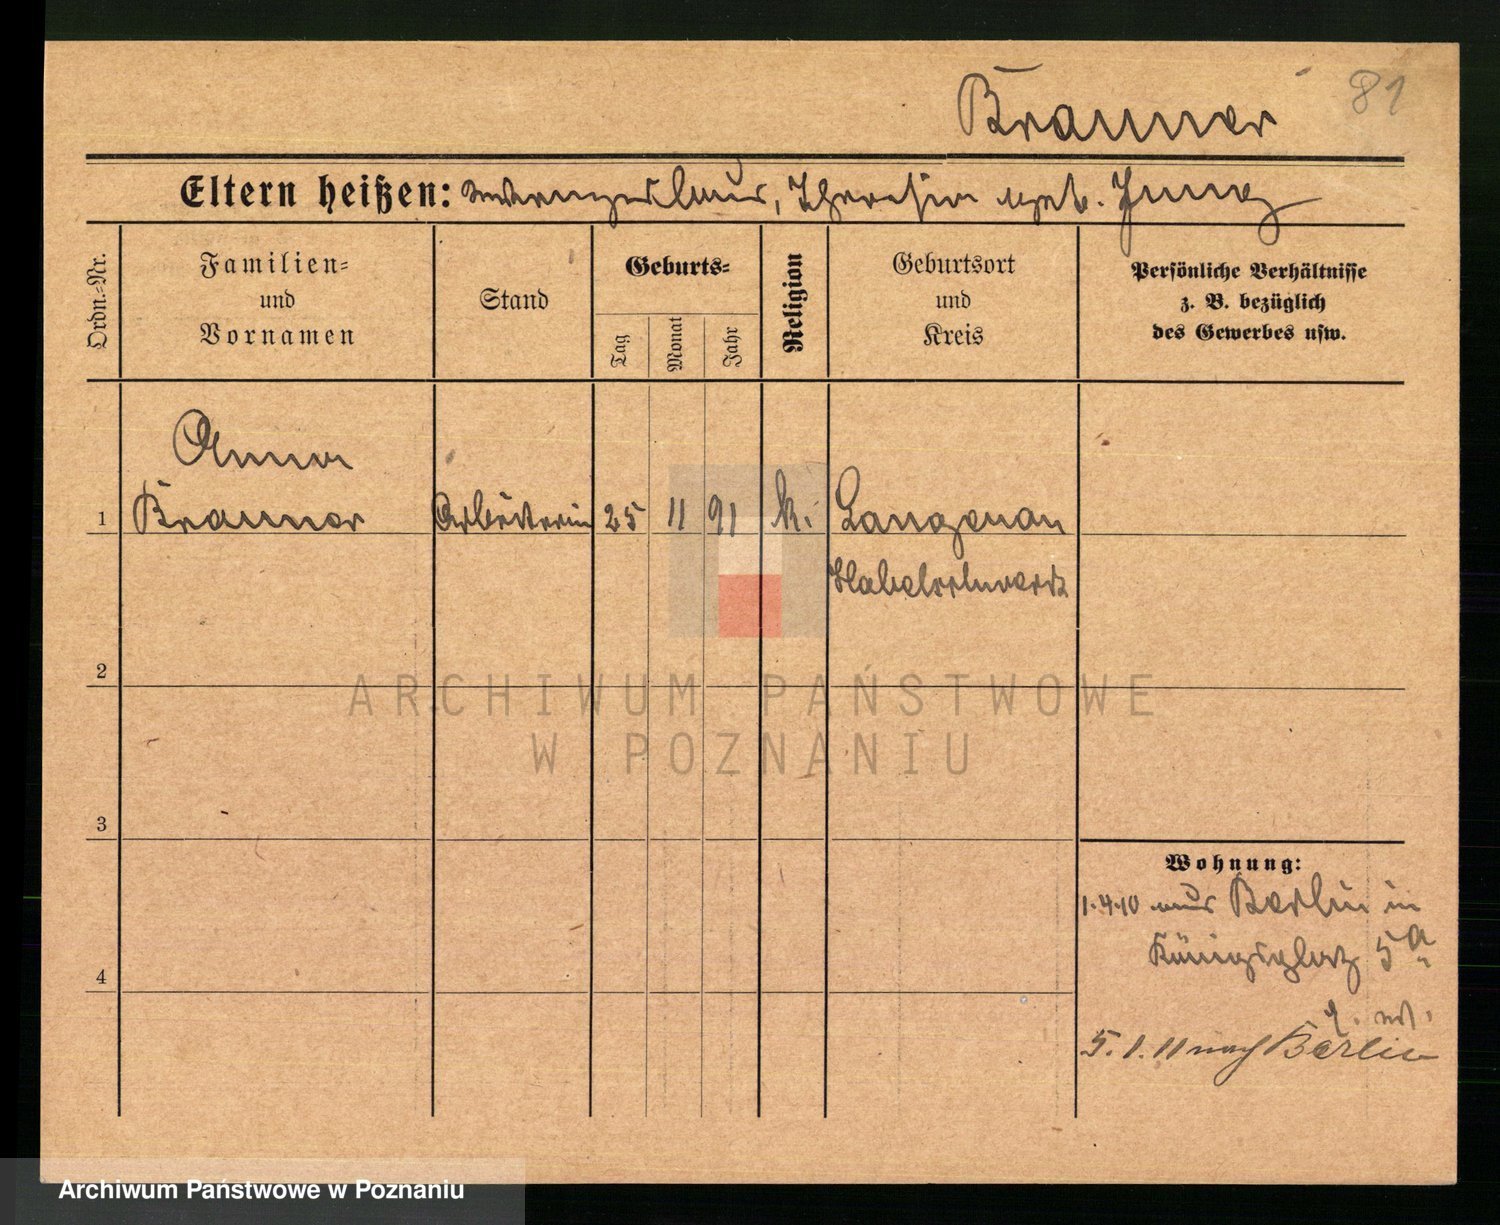 Branner 81
Eltern heißen: Theresia geb. Jung
Ordn.=Nr.
Familien=
und
Vornamen
Stand
Geburts=
Tag
Monat
Jahr
Religion
Geburtsort
und
Kreis
Persönliche Verhältnisse
z. B. bezüglich
des Gewerbes usw.
Anna
1 Branner Arbeiterin 25 11 91 k. Langenau
Habelschwerdt
2
ARCHIWUM PAŃSTWOWE
W POZNANIU
3
Wohnung:
1.4.10 aus Berlin in
Königsplatz 5a
4
5.1.11 nach Berlin
Archiwum Państwowe w Poznaniu